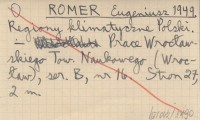 ROMER Eugeniusz 1949
Regiony klimatyczne Polski.
— Prace Wrocław-
skiego Tow. Naukowego (Wroc-
ław), ser. B, nr 16. Stron 27,
2 m.